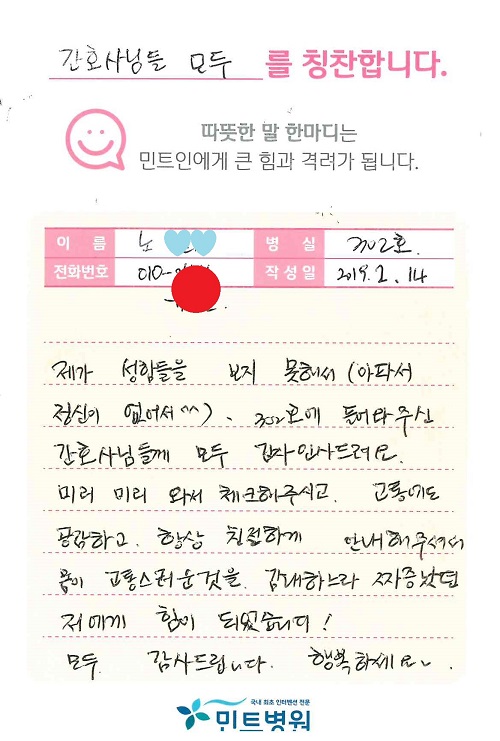 간호사님들 모두 를 칭찬합니다.
따뜻한 말 한마디는
민트인에게 큰 힘과 격려가 됩니다.
이 름 노 병 실 302호.
전화번호 010- 작성일 2019. 2. 14
제가 성함들을 보지 못해서 (아파서
정신이 없어서^^). 302호에 들어와주신
간호사님들께 모두 감사인사드려요.
미리 미리 와서 체크해주시고. 고통에도
공감하고. 항상 친절하게 안내해주셔서
몸이 고통스러운것을. 감내하느라 짜증났던
저에게 힘이 되었습니다!
모두 감사드립니다. 행복하세요~.
국내 최초 인터벤션 전문
민트병원